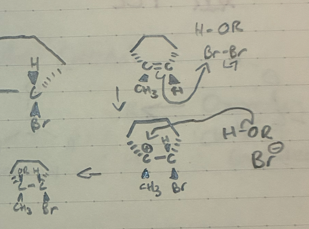 H-OR
Br-Br
C=C
CH₃ H
H
C
Br
⊕ H
C-C
CH₃ Br
H-OR
Br⊖
OR H
C-C
CH₃ Br